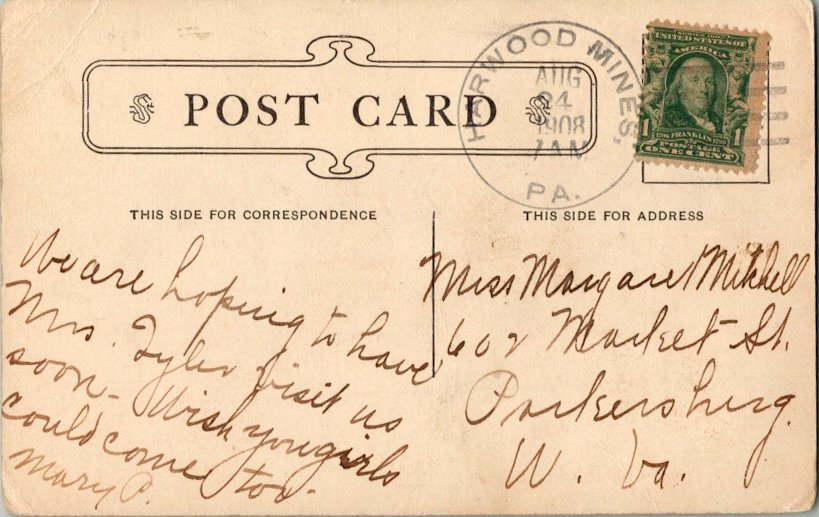 POST CARD
HARWOOD MINES,
AUG
24
1908
7 AM
PA.
SERIES 1902
UNITED STATES OF
AMERICA
1 1706 FRANKLIN 1790 1
POSTAGE
ONE CENT
THIS SIDE FOR CORRESPONDENCE
We are hoping to have
Mrs. Tyler visit us
soon - Wish you girls
could come too -
Mary P.
THIS SIDE FOR ADDRESS
Miss Margaret Mitchell
602 Market St.
Parkersburg.
W. Va.